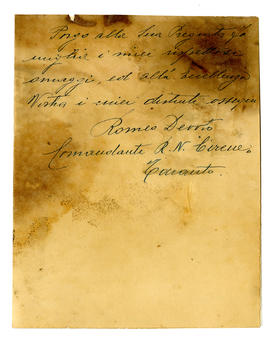 Porgo alla Sua Pregiata fa
miglia i miei rispettosi
omaggi, ed alla Eccellenza
Vostra i miei distinti ossequi
Romeo Devoto
Comandante R. N. Cirene
Taranto.